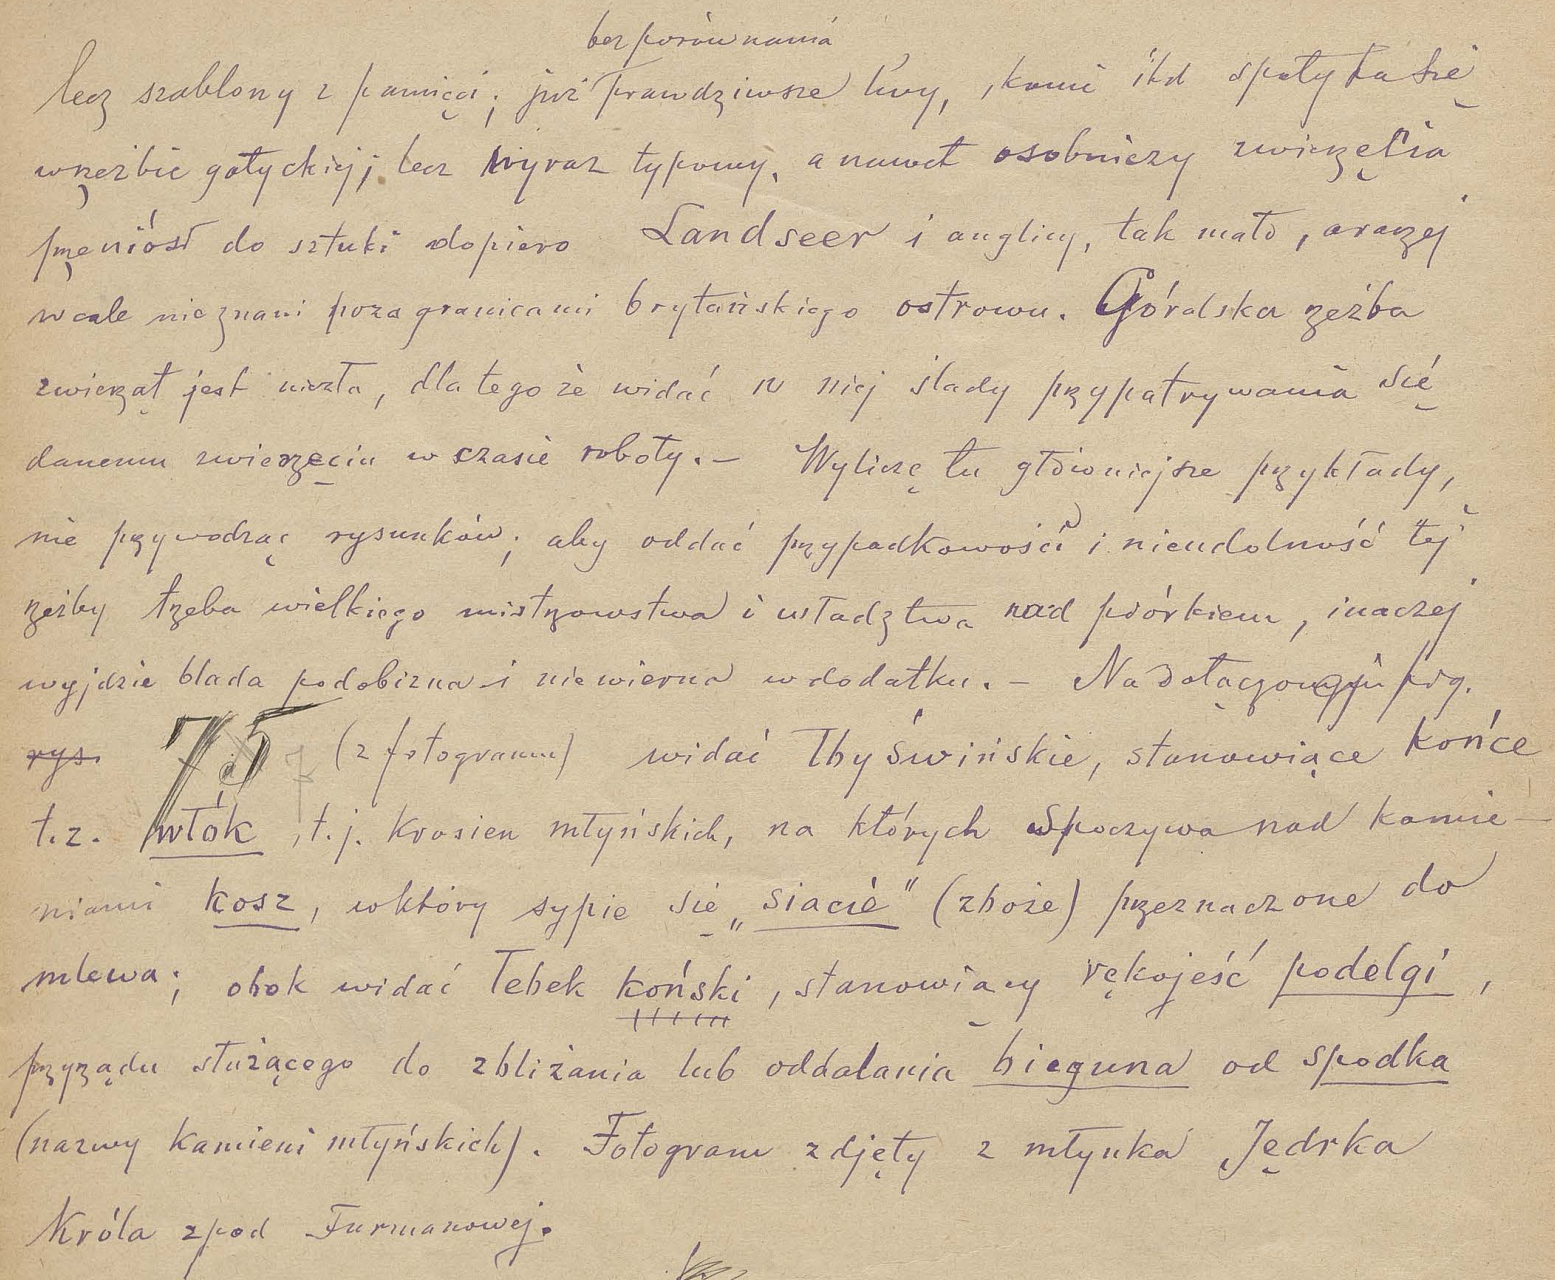 bez porównania
lecz szablony z pamięci; już prawdziwsze lwy, konie itd spotyka się
w rzeźbie gotyckiej; lecz wyraz typowy, a nawet osobniczy zwierzęcia
przeniósł do sztuki dopiero Landseer i anglicy, tak mało, a raczej
wcale nieznani poza granicami brytańskiego ostrowu. Góralska rzeźba
zwierząt jest niezła, dlatego że widać w niej ślady przypatrywania się
danemu zwierzęciu w czasie roboty. – Wyliczę tu główniejsze przykłady,
nie przywodząc rysunków; aby oddać przypadkowość i nieudolność tej
rzeźby trzeba wielkiego mistrzowstwa i władztwa nad piórkiem, inaczej
wyjdzie blada podobizna i niewierna w dodatku. – Na dołączonym fig.
rys. 75 (z fotogramu) widać łby świńskie, stanowiące końce
t.z. włók, t.j. krosien młyńskich, na których spoczywa nad kamie–
niami kosz, w który sypie się „siacie" (zboże) przeznaczone do
mlewa; obok widać łebek koński, stanowiący rękojeść podelgi,
przyrządu służącego do zbliżania lub oddalania bieguna od spodka
(nazwy kamieni młyńskich). Fotogram zdjęty z młynka Jędrka
Króla zpod Furmanowej.